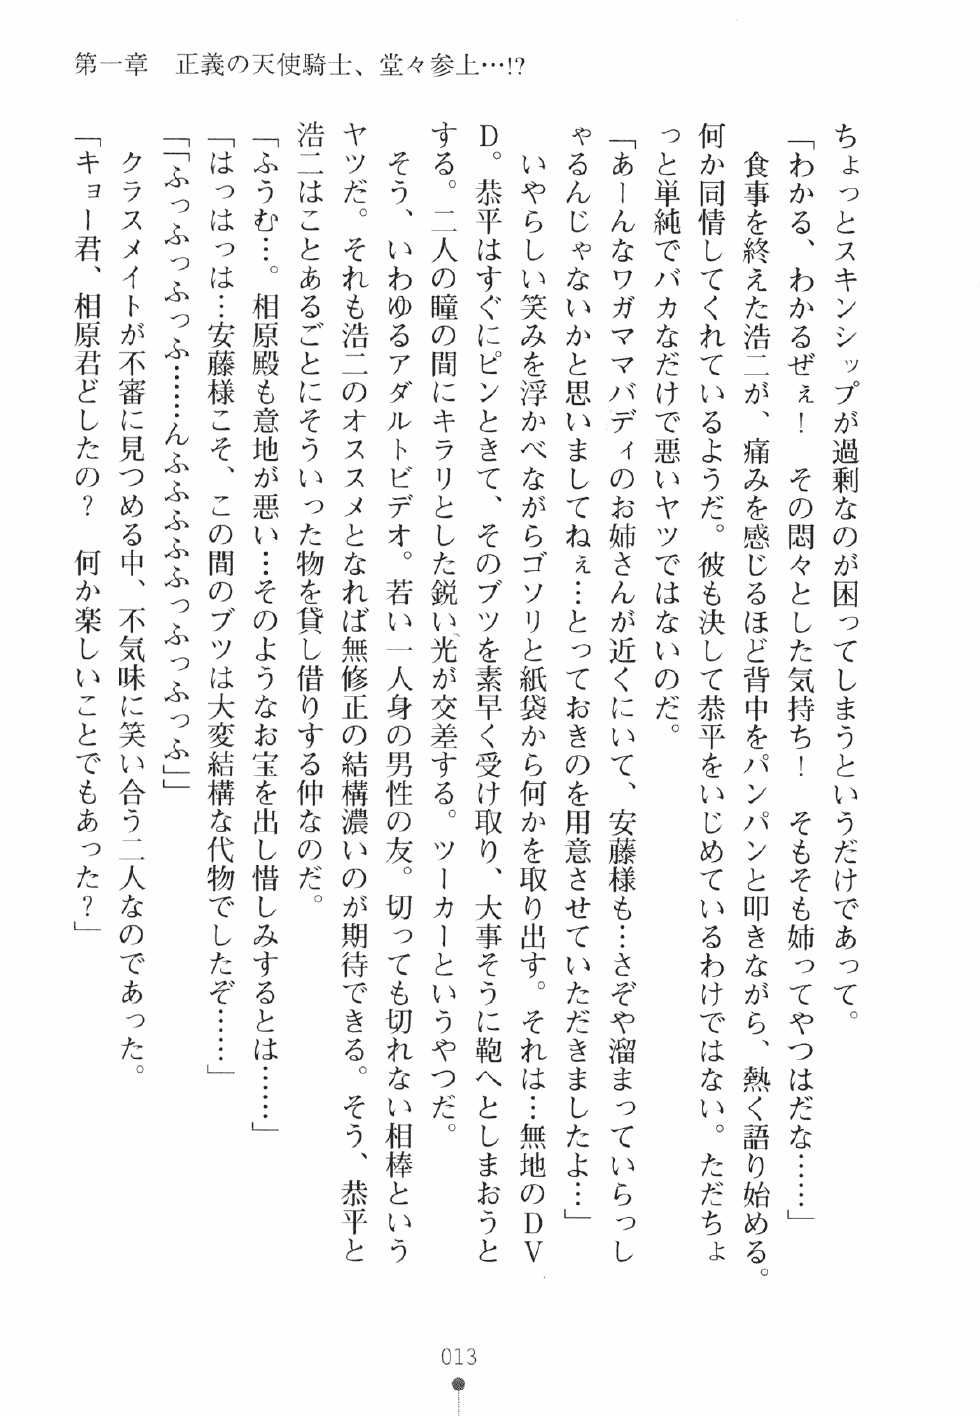 第一章　正義の天使騎士、堂々参上…!?
ちょっとスキンシップが過剰なのが困ってしまうというだけであって。
「わかる、わかるぜぇ！　その悶々とした気持ち！　そもそも姉ってやつはだな……」
　食事を終えた浩二が、痛みを感じるほど背中をパンパンと叩きながら、熱く語り始める。
何か同情してくれているようだ。彼も決して恭平をいじめているわけではない。ただちょ
っと単純でバカなだけで悪いヤツではないのだ。
「あーんなワガママバディのお姉さんが近くにいて、安藤様も…さぞや溜まっていらっし
ゃるんじゃないかと思いましてねぇ…とっておきのを用意させていただきましたよ…」
　いやらしい笑みを浮かべながらゴソリと紙袋から何かを取り出す。それは…無地のＤＶ
Ｄ。恭平はすぐにピンときて、そのブツを素早く受け取り、大事そうに鞄へとしまおうと
する。二人の瞳の間にキラリとした鋭い光が交差する。ツーカーというやつだ。
　そう、いわゆるアダルトビデオ。若い一人身の男性の友。切っても切れない相棒という
ヤツだ。それも浩二のオススメとなれば無修正の結構濃いのが期待できる。そう、恭平と
浩二はことあるごとにそういった物を貸し借りする仲なのだ。
「ふうむ…。相原殿も意地が悪い…そのようなお宝を出し惜しみするとは……」
「はっはっは…安藤様こそ、この間のブツは大変結構な代物でしたぞ……」
「「ふっふっふっふ……んふふふふっふっふっふ」」
　クラスメイトが不審に見つめる中、不気味に笑い合う二人なのであった。
「キョー君、相原君どしたの？　何か楽しいことでもあった？」
013